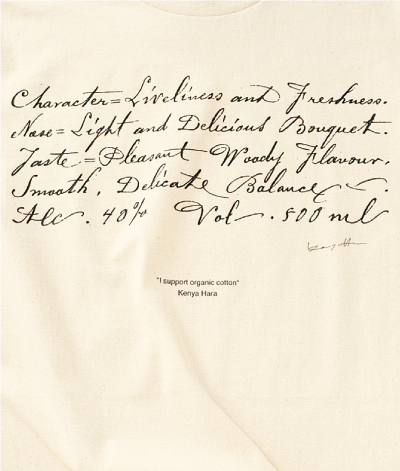 Character = Liveliness and Freshness.
Nose = Light and Delicious Bouquet.
Taste = Pleasant Woody Flavour.
Smooth, Delicate Balance.
Alc. 40% Vol. 500 ml
"I support organic cotton"
Kenya Hara